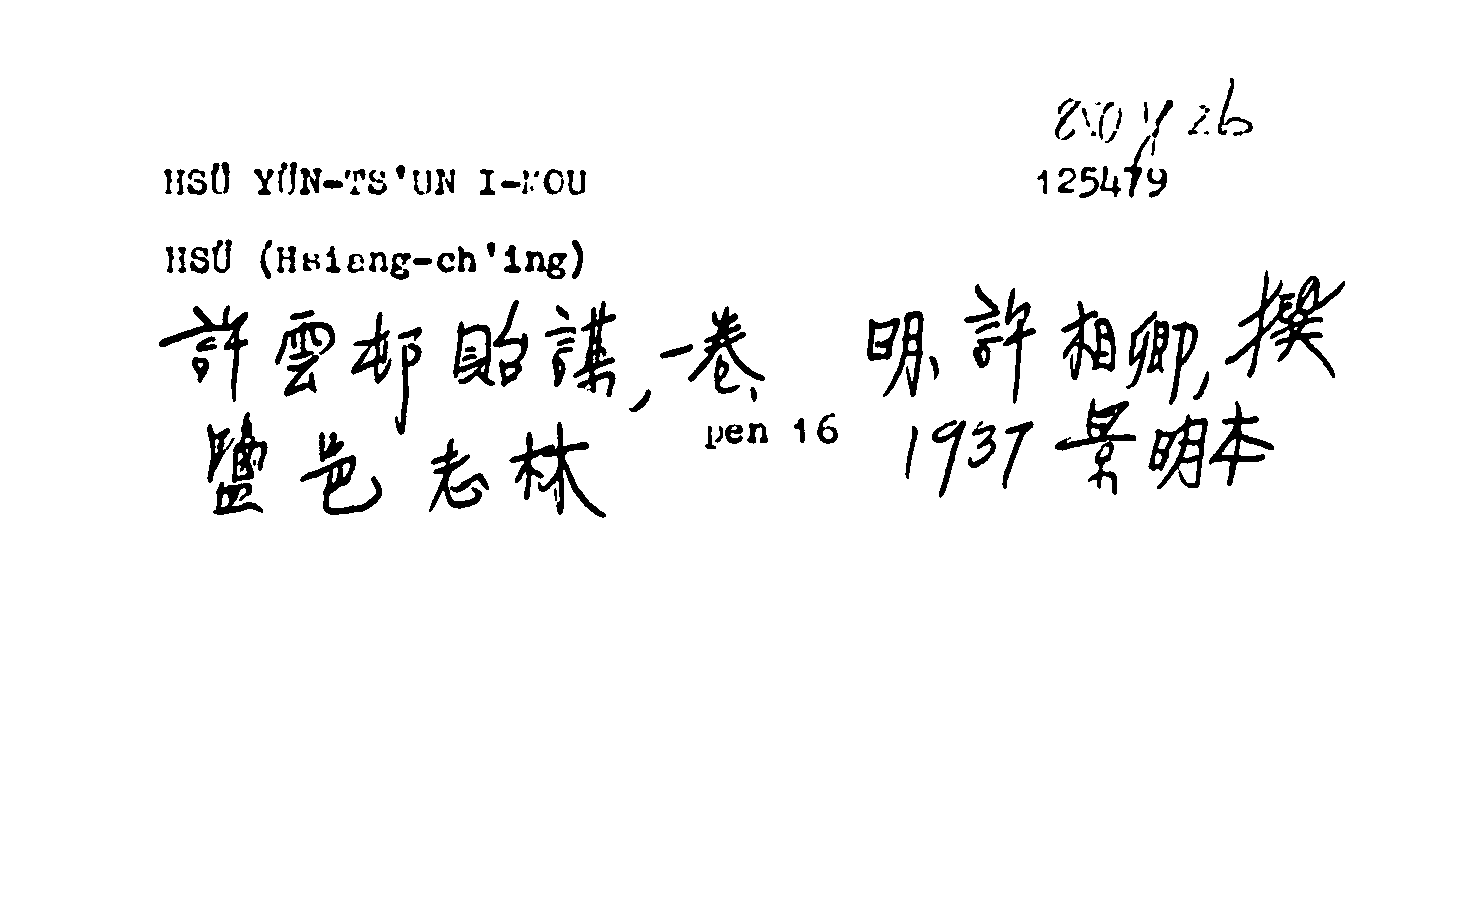 HSÜ YÜN-TS'UN I-MOU
125479
HSÜ (Hsiang-ch'ing)
許雲邨貽謀,一卷、 明、許相卿,撰
鹽邑志林 pen 16 1937 景明本